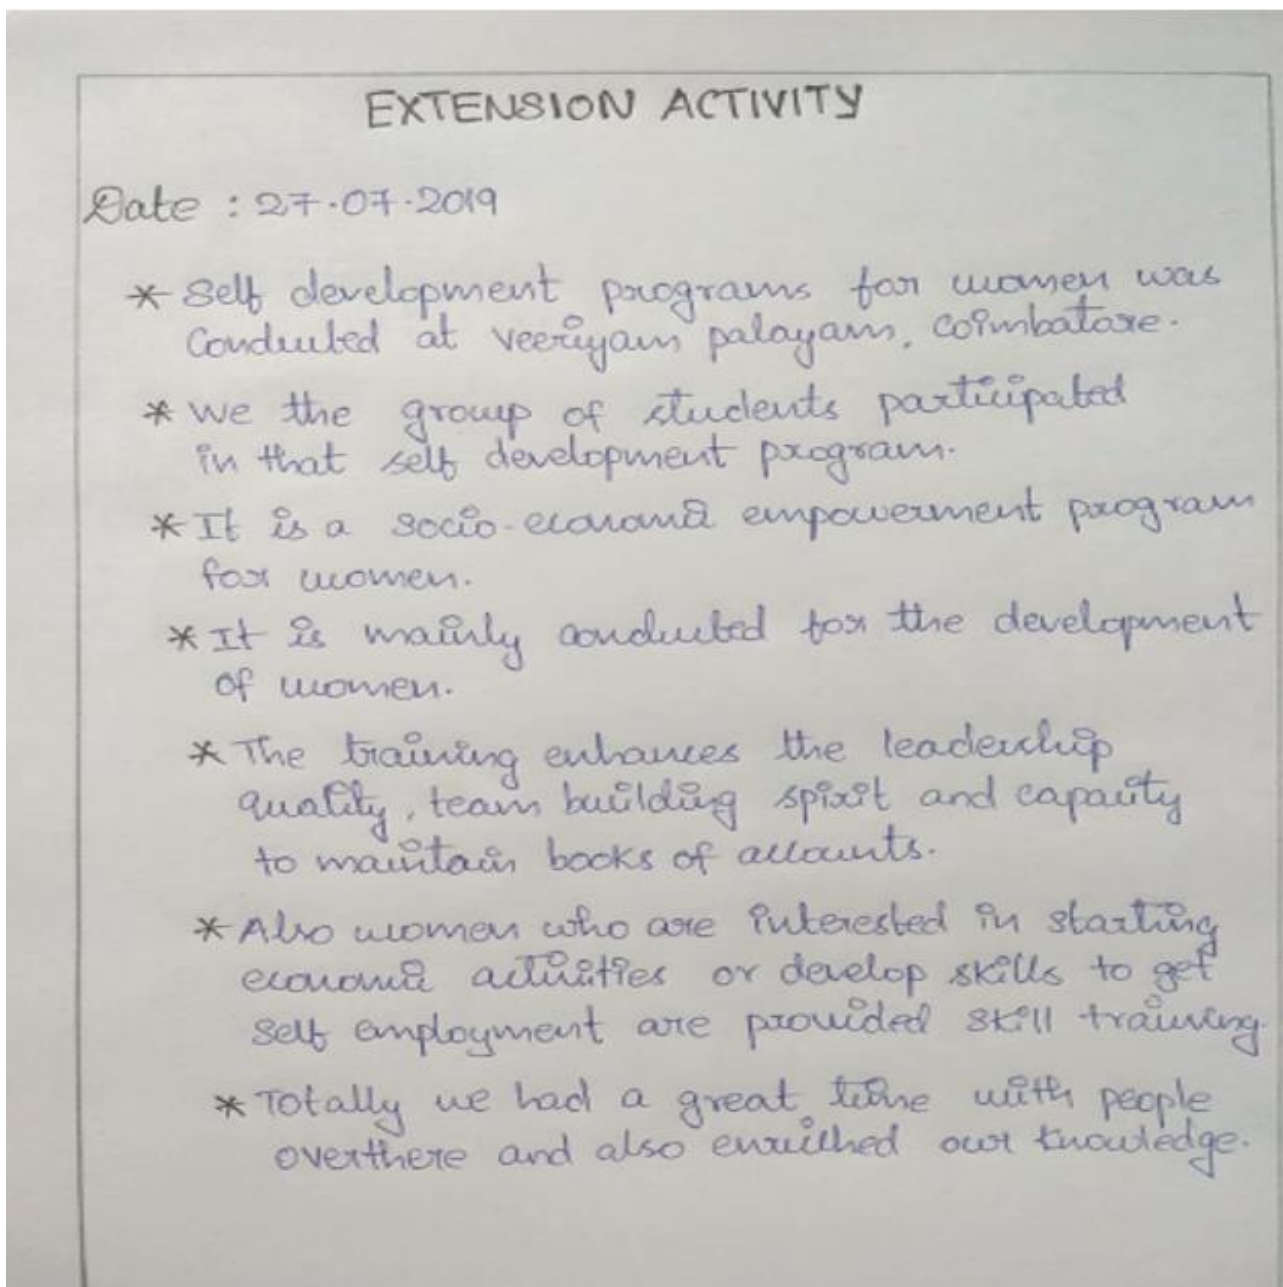 EXTENSION ACTIVITY
Date : 27.07.2019
* Self development programs for women was
Conducted at veeriyam palayam, coimbatore.
* We the group of students participated
in that self development program.
* It is a socio-economic empowerment program
for women.
* It is mainly conducted for the development
of women.
* The training enhances the leadership
quality, team building spirit and capacity
to maintain books of accounts.
* Also women who are interested in starting
economic activities or develop skills to get
self employment are provided skill training.
* Totally we had a great time with people
overthere and also enriched our knowledge.